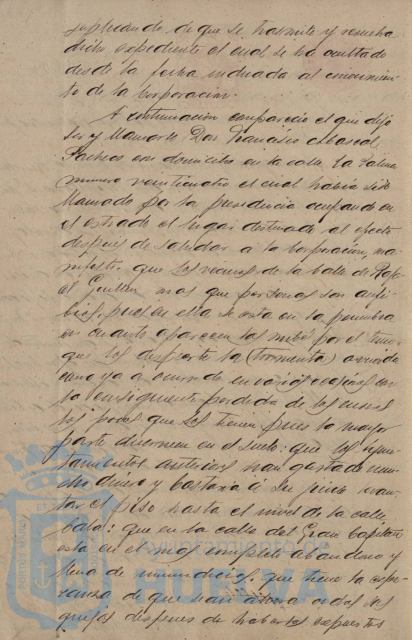 suplicando de que se tramite y resuelva
dicho expediente el cual se ha ocultado
desde la fecha indicada al conocimien-
to de la Corporación.
A continuación compareció el que dijo
ser y llamarse Don Francisco
Pacheco con domicilio en la calle La Palma
número veinticuatro el cual había sido
llamado por la presidencia ocupando en
el estrado el lugar destinado al efecto
después de saludar a la Corporación, ma-
nifestó que los vecinos de la calle de Rafa-
el Guillen mas que personas son anfi-
bios, pues en ella se está en la penumbra
en cuanto aparecen las nubes por el temor
que les despierta la (tormenta)
como ya a ocurrido en varias ocasiones con
la consiguiente perdida de los enseres
los pobres que los tienen pues la mayor
parte duermen en el suelo: que los Ayun-
tamientos anteriores han gastado mu-
cho dinero y bastaría
el piso hasta el nivel de la calle
que en la calle del Gran Capitán
está en el mas completo abandono y
llena de inmundicias, que tiene la espe-
ranza de que sean ahora oidas sus
quejas después de haberlas expuesto
Ayuntamiento de
HUELVA